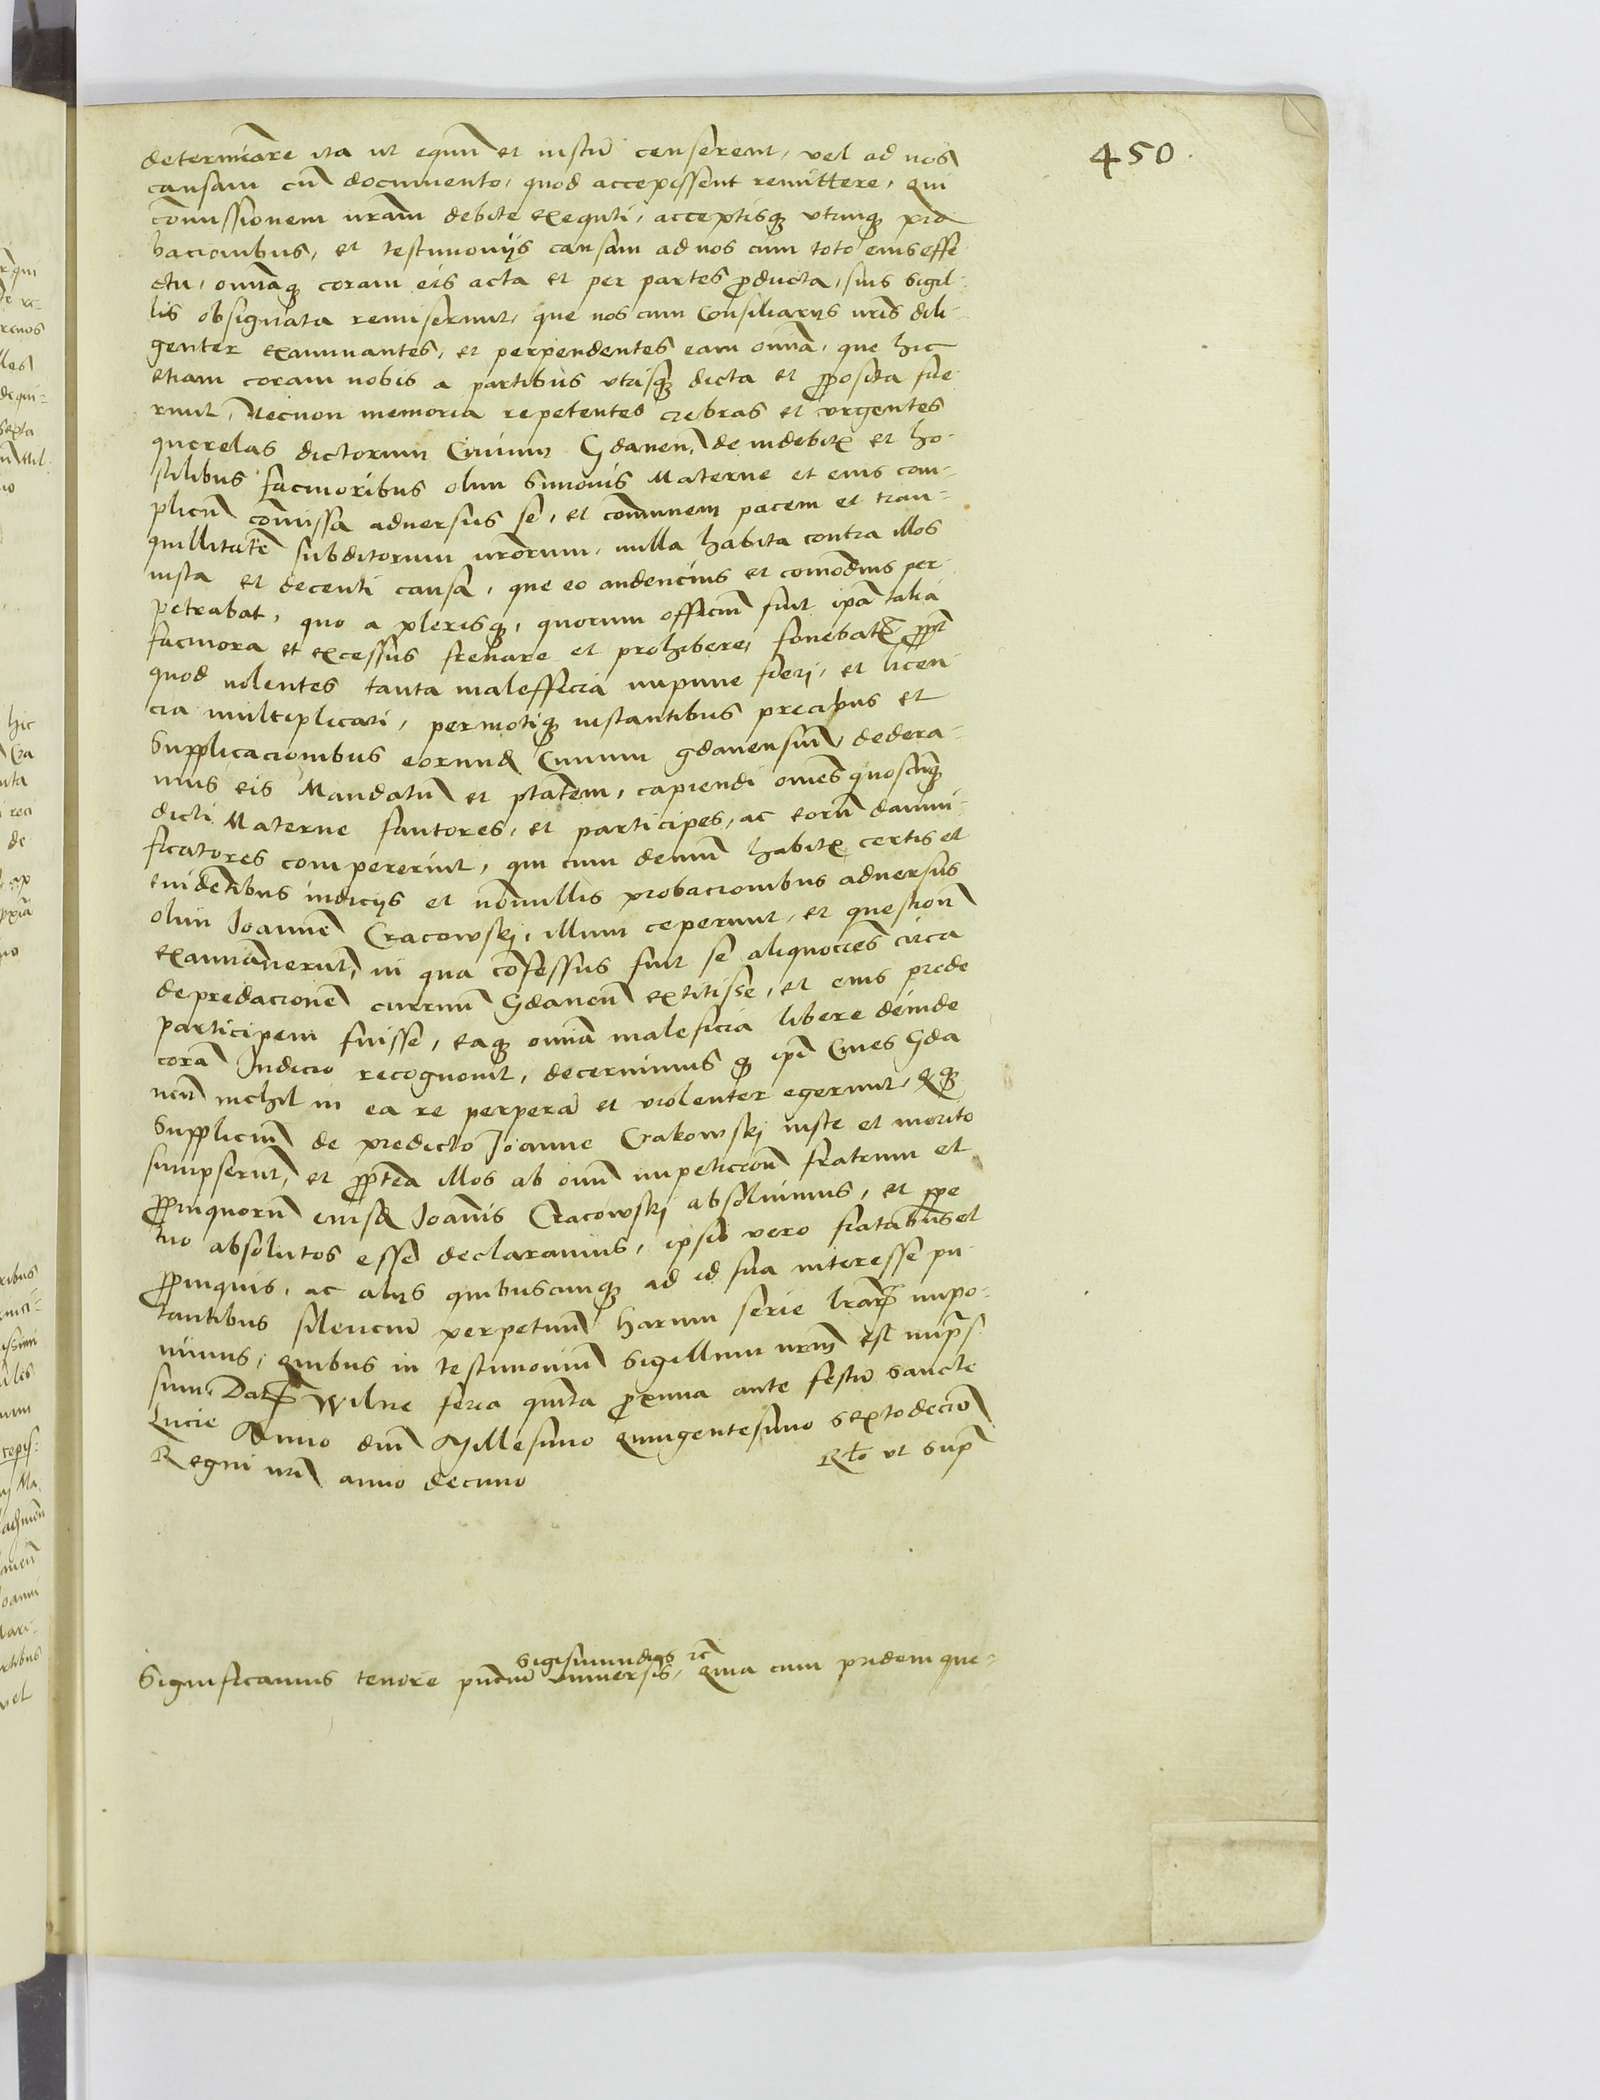 450
determiare ita ut equū et iustū censerent, vel ad nos
causam cū documento, quod accepissent remittere, Qui
cōmissionem nrām debite exequti, acceptisq̄ vtrinq̄ pro
bacionibus, et testimonijs causam ad nos cum toto eius effe
ctu, omnīaq̄ coram eis acta et per partes p̄ducta, suis sigil-
lis obsignata remiserunt, que nos cum Consiliarijs nrīs dili-
genter examinantes, et perpendentes eam omīa, que hic
etiam coram nobis a partibus vtrisq̄ dicta et p̄posita fue
runt, Necnon memoria repetentes crebras et vrgentes
querelas dictorum Civium Gdaneñ, de indebitꝭ et ho-
stilibus facinoribus olim Simonis Materne et eius com-
plicū cōmissa adversus se, et cōmunem pacem et tran-
quillitatē subditorum nrōrum, nulla habita contra illos
iusta et decenti causa, que eo audencius et comodius per
petrabat, quo a plerisq̄, quorum officiū fuit ip̄a talia
facinora et excessus frenare et prohibere, fovebatꝭ pp̄t
quod nolentes tanta malefficia impune fieri, et licen
cia multiplicari, permotiq̄ instantibus precibus et
Supplicacionibus eorundꝭ Civium gdanensiū, dedera-
mus eis Mandatū et ptātem, capiendi om̄es quoscūq̄
dicti Materne fautores, et participes, ac eorū damni-
ficatores compererint, qui cum demū habitꝭ certis et
evidētibus indicijs et nōnullis probacionibus adversus
olim Joannē Cracowskj, illum ceperunt, et questionē
examināverūt, in qua cōfessus fuit se aliquocies circa
depredacionē curruū Gdaneñ extitisse, et eius prede
participem fuisse, eaq̄ omīa maleficia libere deinde
corā Iudicio recognovit, decernimus q̄ ip̄i Cives Gda
neñ nichil in ea re perperā et violenter egerunt, Eq̄
Suppliciū de predicto Joanne Crakowskj iuste et merito
sumpserūt, et pp̄tea illos ab omī impeticiōe fratrum et
p̄pinquorū eiusdꝭ Joānis Cracowskj absolvimus, et pp̄e
tuo absolutos esse declaramus, ipsis vero fratribus et
p̄pinquis, ac alijs quibuscumq̄ ad id sua interesse pu
tantibus silenciū perpetuū harum serie lrārꝭ impo-
nimus, Quibus in testimoniū Sigillum nrm̄ est impr̄s
sum, Datꝭ Wilne feria quinta p̄xima ante festū sancte
Lucie Anno dn̄i Millesimo Quingentesimo sextodecīo
Regni nrī anno decimo
Rtō ut sup̄
Sigismundus etc̄
Significamus tenore pn̄ciū universis, Quia cum pridem que-